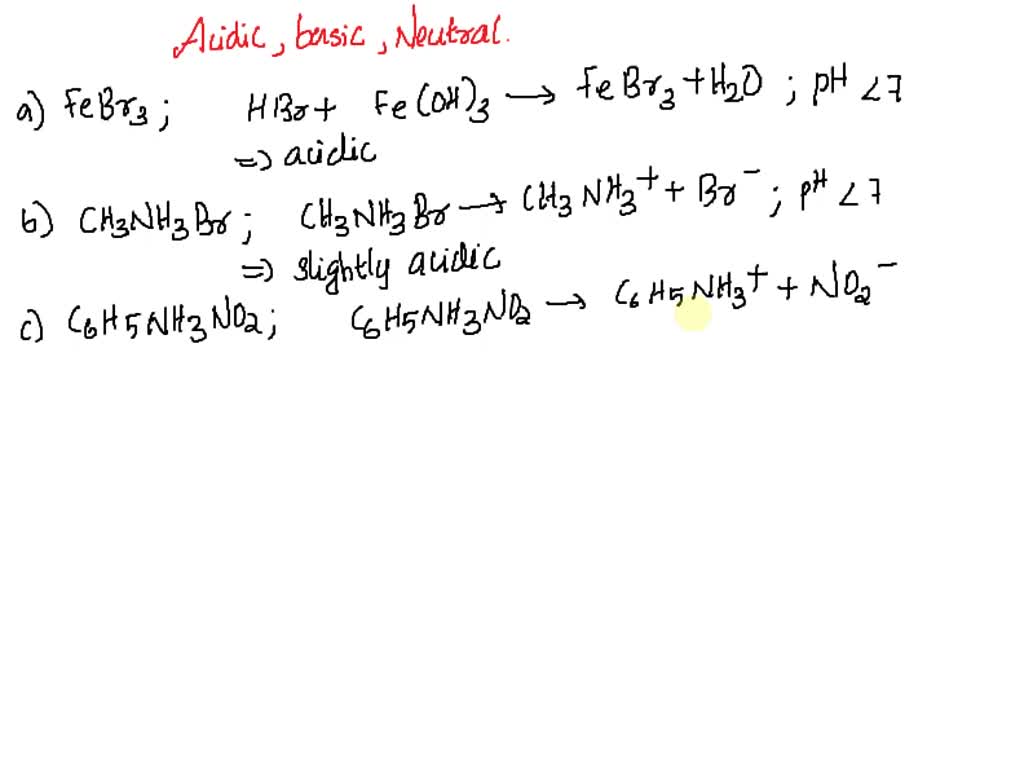 Acidic, basic, Neutral.
a) FeBr3 ; HBr + Fe(OH)3 → FeBr3 + H2O ; pH < 7
=> acidic
b) CH3NH3Br ; CH3NH3Br → CH3NH3+ + Br- ; pH < 7
=> slightly acidic
c) C6H5NH3NO2 ; C6H5NH3NO2 → C6H5NH3+ + NO2-